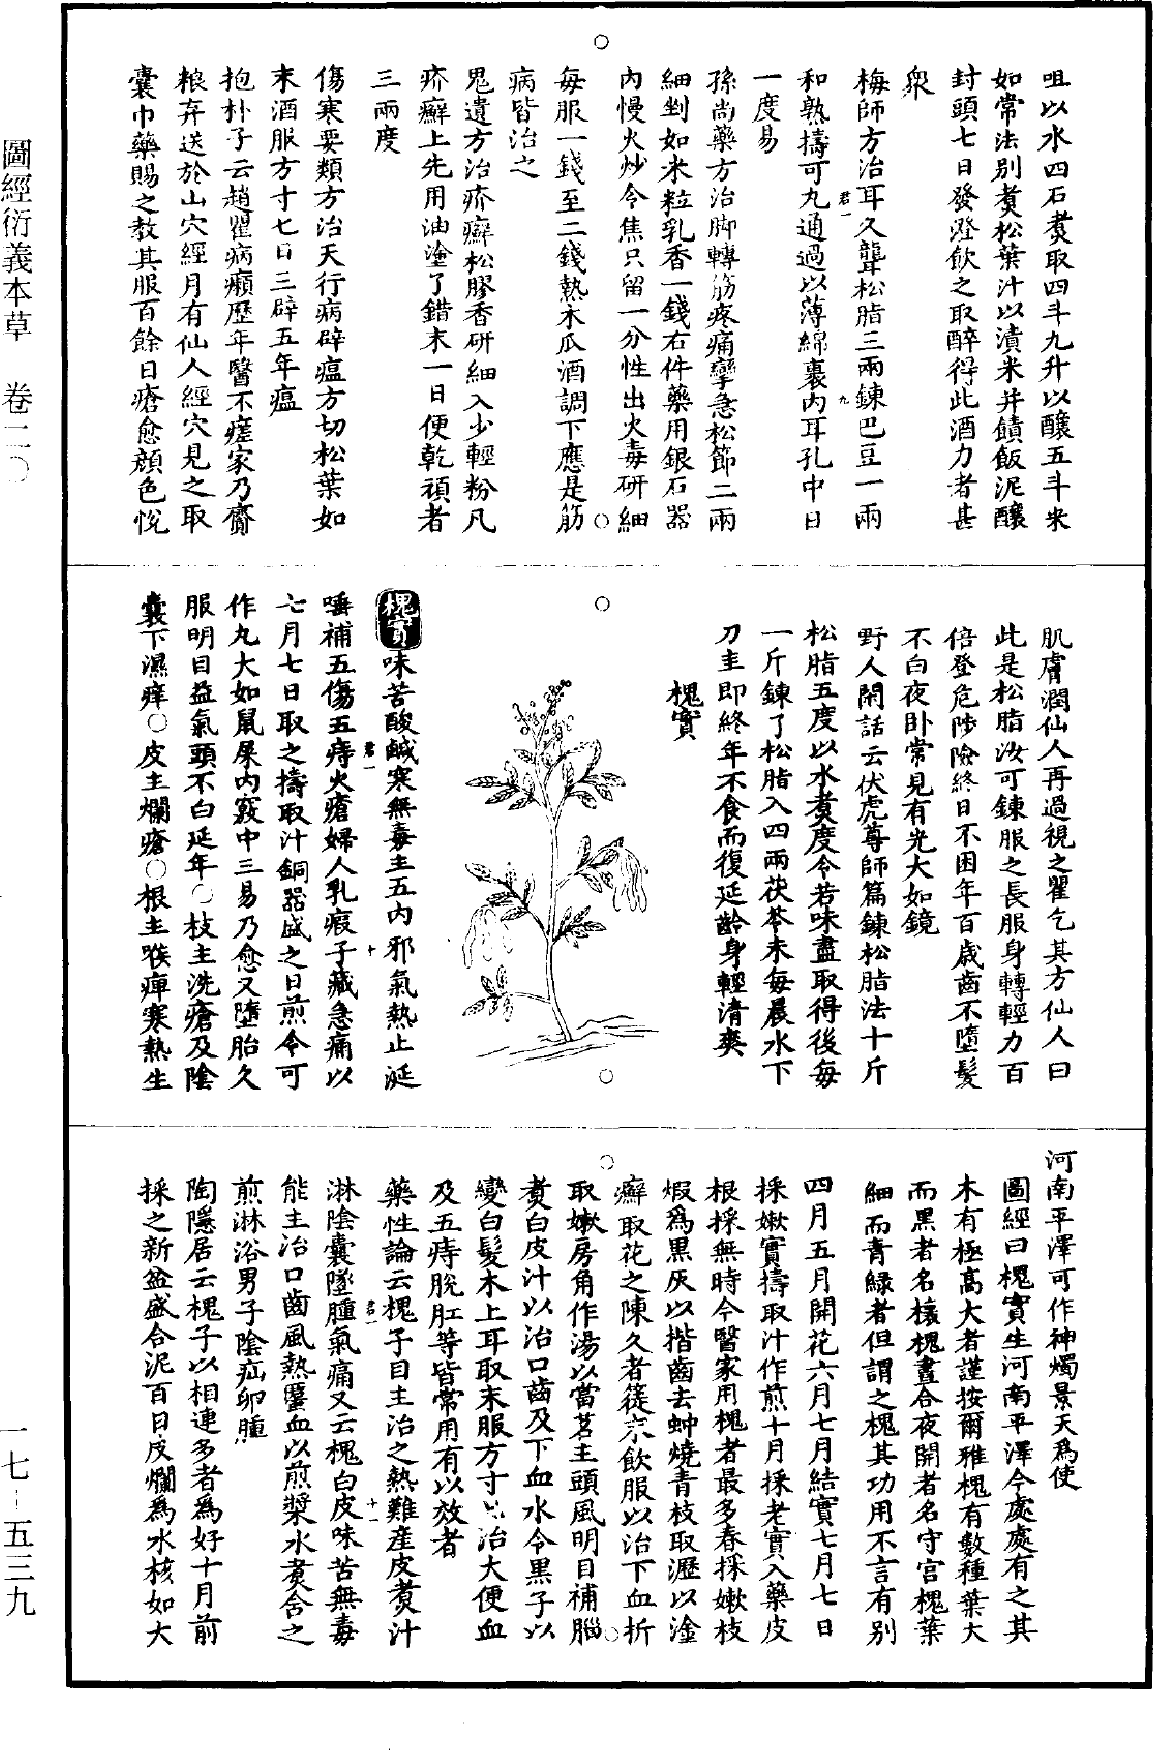 咀以水四石煑取四斗九升以釀五斗米
如常法別煑松葉汁以漬米并饙飯泥釀
封頭七日發澄飲之取醉得此酒力者甚
衆
梅師方治耳久聾松脂三兩鍊巴豆一兩
和熟擣可丸通過以薄綿裹內耳孔中日
一度易
孫尚藥方治脚轉筋疼痛攣急松節二兩
細剉如米粒乳香一錢右件藥用銀石器
內慢火炒令焦只留一分性出火毒研細
每服一錢至二錢熱木瓜酒調下應是筋
病皆治之
鬼遺方治疥癬松膠香研細入少輕粉凡
疥癬上先用油塗了錯末一日便乾頑者
三兩度
傷寒要類方治天行病辟瘟方切松葉如
末酒服方寸七日三辟五年瘟
抱朴子云趙瞿病癩歷年醫不瘥家乃齎
粮弃送於山穴經月有仙人經穴見之取
囊巾藥賜之教其服百餘日瘡愈顏色悅
肌膚潤仙人再過視之瞿乞其方仙人曰
此是松脂汝可鍊服之長服身轉輕力百
倍登危陟險終日不困年百歲齒不墮髮
不白夜卧常見有光大如鏡
野人閑話云伏虎尊師篇鍊松脂法十斤
松脂五度以水煑度令苦味盡取得後每
一斤鍊了松脂入四兩茯苓末每晨水下
刀圭即終年不食而復延齡身輕清爽
槐實
槐實味苦酸鹹寒無毒主五內邪氣熱止涎
唾補五傷五痔火瘡婦人乳瘕子藏急痛以
七月七日取之擣取汁銅器盛之日煎令可
作丸大如鼠屎內竅中三易乃愈又墮胎久
服明目益氣頭不白延年○枝主洗瘡及陰
囊下濕痒○皮主爛瘡○根主喉痺寒熱生
河南平澤可作神燭景天爲使
圖經曰槐實生河南平澤今處處有之其
木有極高大者謹按爾雅槐有數種葉大
而黑者名櫰槐晝合夜開者名守宮槐葉
細而青緑者但謂之槐其功用不言有別
四月五月開花六月七月結實七月七日
採嫩實擣取汁作煎十月採老實入藥皮
根採無時今醫家用槐者最多春採嫩枝
煆爲黑灰以揩齒去蚛燒青枝取瀝以塗
癬取花之陳久者篵末飲服以治下血折
取嫩房角作湯以當茗主頭風明目補腦
煑白皮汁以治口齒及下血水今黑子以
變白髮木上耳取末服方寸匕治大便血
及五痔脫肛等皆常用有以效者
藥性論云槐子目主治之熱難產皮煑汁
淋陰囊墜腫氣痛又云槐白皮味苦無毒
能主治口齒風熱䘌血以煎漿水煑含之
煎淋浴男子陰疝卵腫
陶隱居云槐子以相連多者爲好十月前
採之新盆盛合泥百日皮爛爲水核如大
圖經衍義本草 卷二〇
一七-五三九